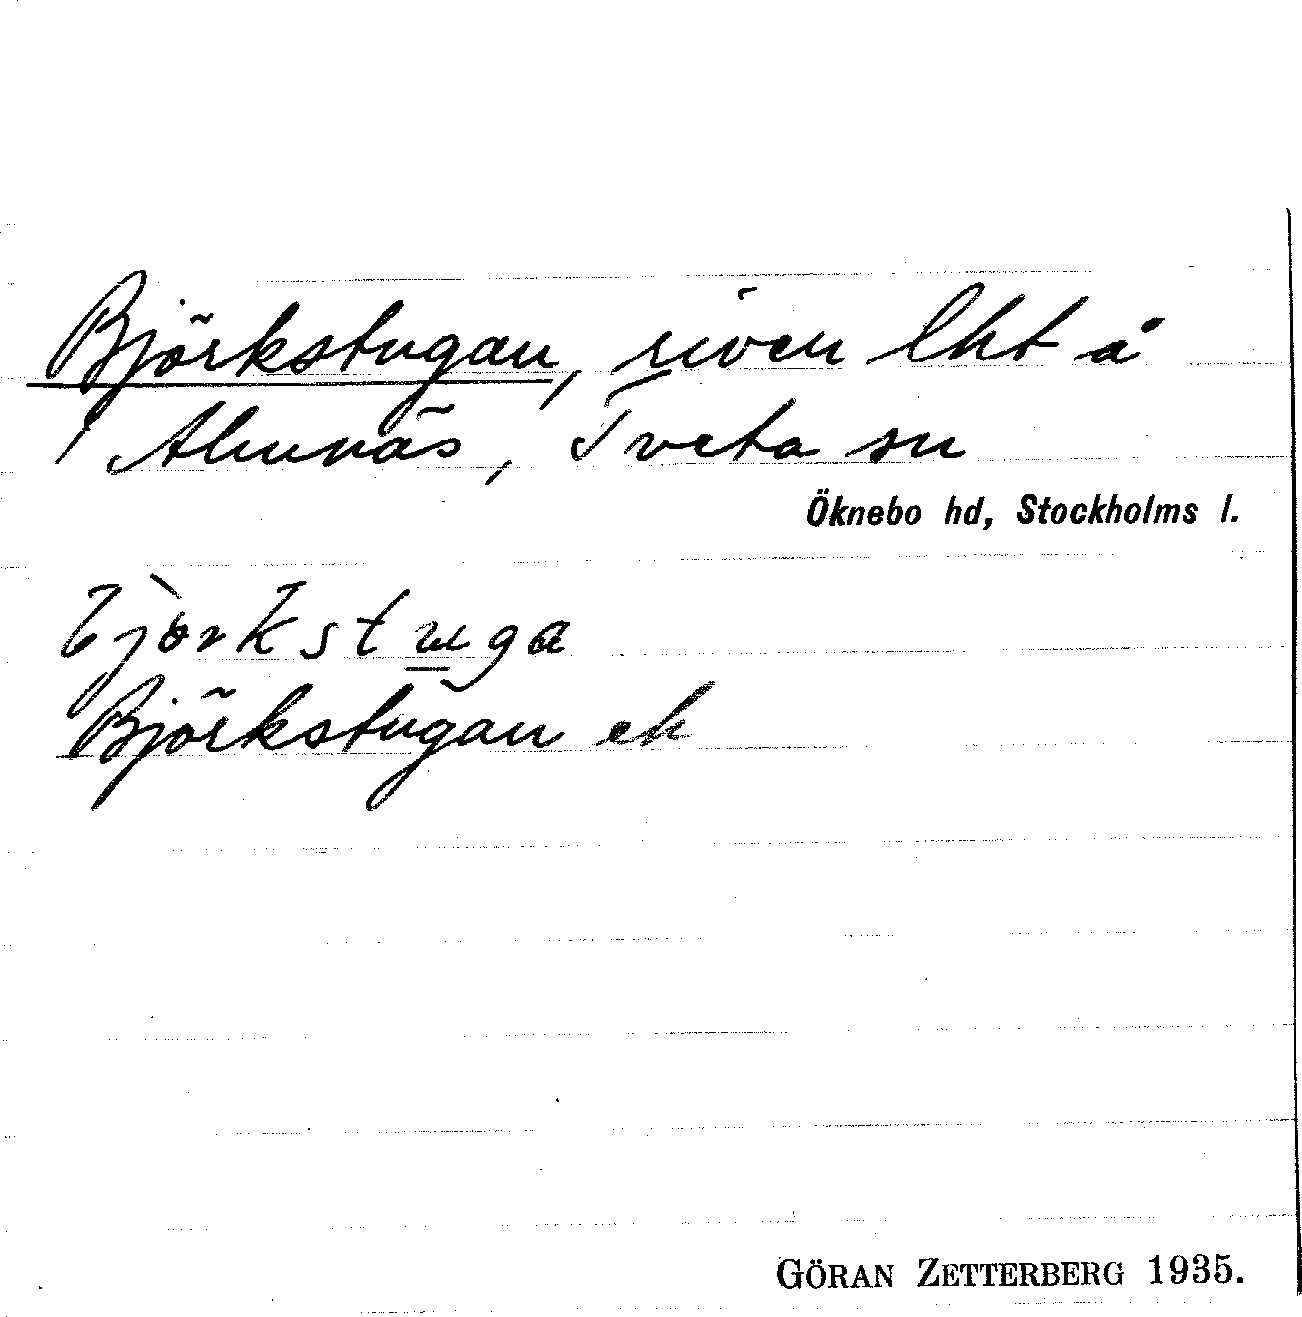 Björkstugan, riven lht å
1 Almnäs, Tveta sn
Öknebo hd, Stockholms l.
bjòrkstuga
Björkstugan ek
GÖRAN ZETTERBERG 1935.